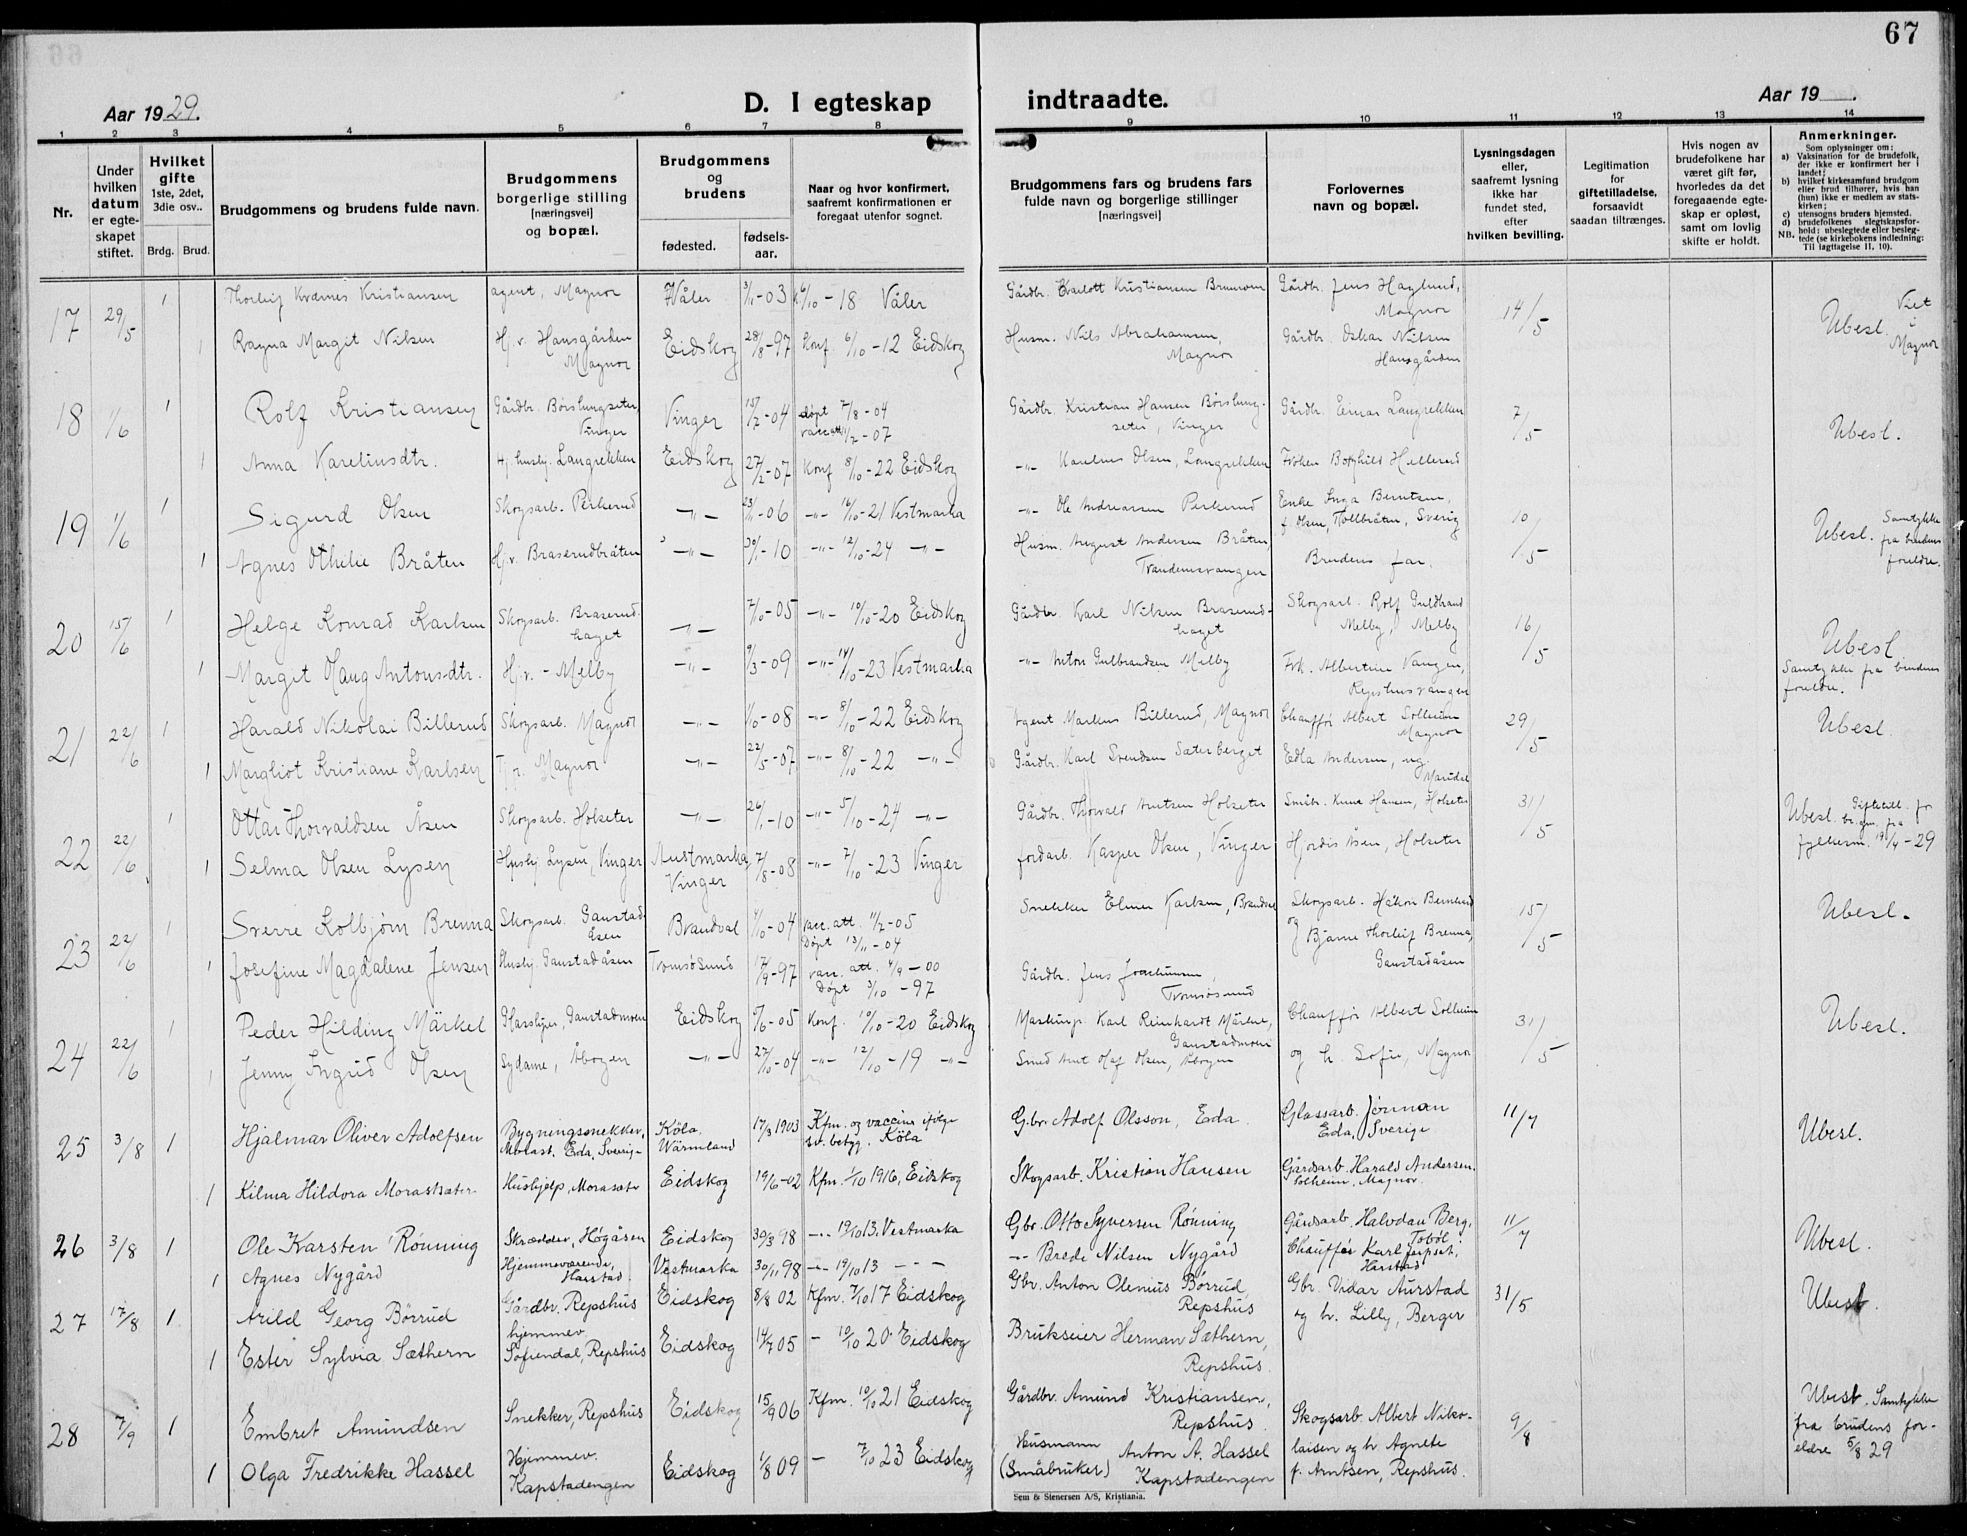 67
Aar 1929.
D. I egteskap indtraadte.
Aar 19 .
1 2 3 4 5 6 7 8 9 10 11 12 13 14
Nr.
Under hvilken datum er egteskapet stiftet.
Hvilket gifte 1ste, 2det, 3die osv..
Brdg. Brud.
Brudgommens og brudens fulde navn.
Brudgommens borgerlige stilling [næringsvei] og bopæl.
Brudgommens og brudens
fødested.
fødselsaar.
Naar og hvor konfirmert, saafremt konfirmationen er foregaat utenfor sognet.
Brudgommens fars og brudens fars fulde navn og borgerlige stillinger [næringsvei]
Forlovernes navn og bopæl.
Lysningsdagen eller, saafremt lysning ikke har fundet sted, efter hvilken bevilling.
Legitimation for giftetilladelse, forsaavidt saadan tiltrænges.
Hvis nogen av brudefolkene har været gift før, hvorledes da det foregaaende egteskap er opløst, samt om lovlig skifte er holdt.
Anmerkninger.
Som oplysninger om:
a) Vaksination for de brudefolk, der ikke er konfirmert her i landet;
b) hvilket kirkesamfund brudgom eller brud tilhører, hvis han (hun) ikke er medlem av statskirken;
c) utensogns bruders hjemsted.
d) brudefolkenes slegtskapsforhold: ubeslegtede eller beslegtede (se kirkebokens indledning: Til iagttagelse II, 10).
NB.
17 29/5 1 Thorleif Kristiansen agent, Magnor Våler 3/11-03 6/10-18 Våler Gårdbr. Kristiansen Gårdbr. Jens Haglund, Magnor 14/5 Ubesl. Viet i Magnor
1 Ragna Margit Nilsen Hj.v. Hansgården Magnor Eidskog 28/8-97 Konf. 6/10-12 Eidskog Husm. Nils Abrahamsen, Magnor Gårdbr. Oskar Nilsen Hansgården
18 1/6 1 Rolf Kristiansen Gårdbr. Børslungseter, Vinger Vinger 15/2-04 døpt 7/8-04 vacc.att. 11/2-07 Gårdbr. Kristian Hansen Børslungseter, Vinger Gårdbr. Einar Langrekken 7/5 Ubesl.
1 Anna Karelinsdtr. Hj. hushj. Langrekken Eidskog 27/2-07 Konf 8/10-22 Eidskog -"- Karelius Olsen, Langrekken Frøken Borghild Hellerud
19 1/6 1 Sigurd Olsen Skogsarb. Perkerud -"- 23/11-06 -"- 16/10-21 Vestmarka -"- Ole Andreassen Perkerud Enke Inga Berntsen, f. Olsen, Tollbråten, Sverig 10/5 Ubesl. Samtykke fra brudens foreldre.
1 Agnes Othelie Bråten Hj.v. Braserudbråten -"- 30/1-10 -"- 12/10-24 -"- Husm. August Andersen Bråten, Trandemsvangen Brudens far.
20 15/6 1 Helge Konrad Karlsen Skogsarb. Braserudhaget -"- 7/10-05 -"- 10/10-20 Eidskog Gårdbr. Karl Nilsen Braserudhaget Skogsarb. Rolf Guldbrand Melby, Melby 16/5 Ubesl. Samtykke fra brudens foreldre.
1 Margit Haug Antonsdtr. Hj.v. - Melby -"- 9/3-09 -"- 14/10-23 Vestmarka -"- Anton Gulbrandsen Melby Frk. Albertine Vangen, Repshusvangen
21 22/6 1 Harald Nikolai Billerud Skogsarb. Magnor -"- 1/10-08 -"- 8/10-22 Eidskog Agent Markus Billerud, Magnor Chauffør Albert Solheim Magnor 29/5 Ubesl.
1 Margliot Kristiane Karlsen Magnor -"- 22/5-07 -"- 8/10-22 -"- Gårdbr. Karl Svendsen Sæterberget Edla Andersen,
22 22/6 1 Ottar Thorvaldsen Åsen Skogsarb. Holseter -"- 26/1-10 -"- 5/10-24 -"- Gårdbr. Thorvald Arntsen Holseter Småbr. Hansen, Holseter 31/5 Ubesl. Giftetill. for br.gm. fra fylkesm. 19/4-29
1 Selma Olsen Lysen Hushj. Lysen, Vinger Austmarka Vinger 7/8-08 -"- 7/10-23 Vinger Jordarb. Kasper Olsen, Vinger Hjørdis Åsen, Holseter
23 22/6 1 Sverre Kolbjørn Brenna Skogsarb. Gaustadåsen Brandval 4/10-04 vacc. att. 11/2-05 Døpt 13/11-04 Snekker Elmer Karlsen, Brandval Skogsarb. Håkon Bernlund og Bjarne Thorleif Brenna, Gaustadåsen 15/5 Ubesl.
1 Josefine Magdalene Jensen Hushj. Gaustadåsen Tromsøsund 17/9-97 vacc. att. 4/9-00 Døpt 3/10-97 Gårdbr. Jens Joachimsen, Tromsøsund
24 22/6 1 Peder Hilding Märkel Glassliper, Gaustadmoen Eidskog 6/6-05 Konf. 10/10-20 Eidskog Karl Reinhardt Gaustadmoen Chauffør Albert Solheim og h. Sofie, Magnor 31/5 Ubesl.
1 Jenny Ingrid Olsen Sydame, Åbogen -"- 27/10-04 -"- 12/10-19 -"- Smed Olaf Olsen, Åbogen
25 3/8 1 Hjalmar Oliver Adolfsen Bygningssnekker, Morast. Eda, Sverige Köla. Wärmland 17/3 1903 Kfm. og vaccine ifølge sv. betyg. Köla Gbr. Adolf Olsson, Eda. Glassarb. Jörman Eda, Sverige 11/7 Ubesl.
1 Kilma Hildora Morastsæter Hushjelp, Morasæter Eidskog 19/6-02 Kfm. 1/10 1916, Eidskog Skogsarb. Kristian Hansen Gårdsarb. Harald Andersen. Solheim. Magnor.
26 3/8 1 Ole Karsten Rönning Skrædder, Högåsen Eidskog 30/3 98 -"- 19/10 13. Vestmarka Gbr. Otto Syversen Rönning Gårdsarb. Halvdan Berg, Tobøl. 11/7 Ubesl.
1 Agnes Nygård Hjemmeværende, Harstad Vestmarka 30/11 98 -"- 19/10 13 - - - -"- Brede Nilsen Nygård Chauffør Karl Jerpset, Harstad
27 17/8 1 Arild Georg Börrud Gårdbr. Repshus Eidskog 8/8 02 Kfm. 7/10 17 Eidskog Gbr. Anton Olenius Börrud, Repshus Gbr. Vidar Aurstad og h. Lilly, Berger 31/5 Ubesl.
1 Ester Sylvia Sæthern hjemmev. Sofiendal, Repshus Eidskog 14/7 05 - 10/10 20 Eidskog Brukseier Herman Sæthern, Repshus.
28 7/9 1 Embret Amundsen Snekker, Repshus Eidskog 15/9 06 Kfm. 10/10 21 Eidskog Gårdbr. Amund Kristiansen, Repshus. Skogsarb. Albert Nikolaisen og h Agnete f. Arntsen, Repshus. 9/8 Ubesl. Samtykke fra brudens foreldre 5/8 29
1 Olga Fredrikke Hassel Hjemmev. Kapstadengen Eidskog 1/8 09 - 7/10 23 Eidskog Husmann (Småbruker) Anton A. Hassel Kapstadengen
Sem & Stenersen A/S, Kristiania.